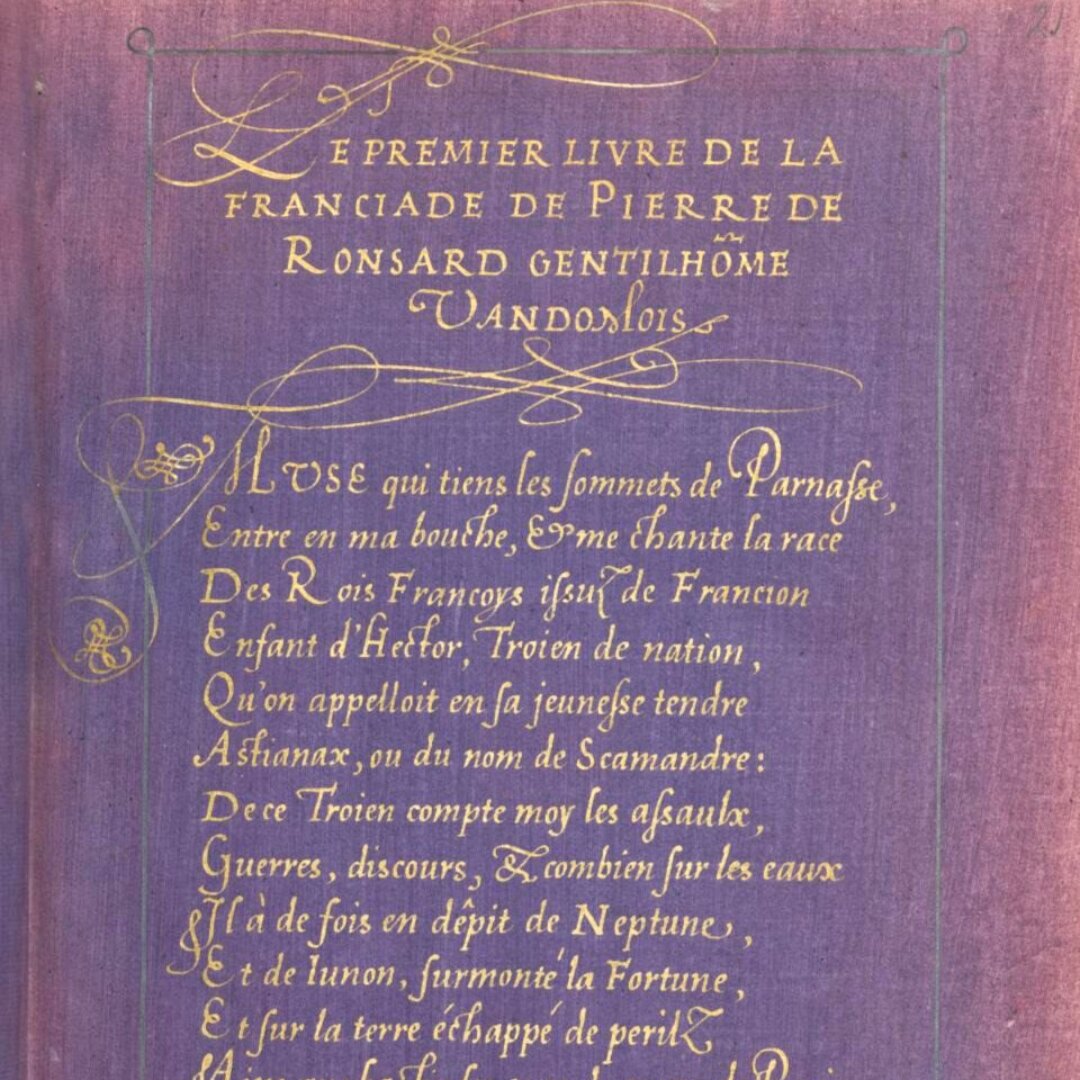 LE PREMIER LIVRE DE LA
FRANCIADE DE PIERRE DE
RONSARD GENTILHÕME
VANDOMOIS
MUSE qui tiens les ſommets de Parnaſse,
Entre en ma bouche, & me chante la race
Des Rois Francoys iſsuz de Francion
Enfant d'Hector, Troien de nation,
Qu'on appelloit en ſa jeuneſse tendre
Astianax, ou du nom de Scamandre:
De ce Troien compte moy les aſsaulx,
Guerres, discours, & combien ſur les eaux
Il à de fois en dêpit de Neptune,
Et de Iunon, ſurmonté la Fortune,
Et ſur la terre échappé de perilz